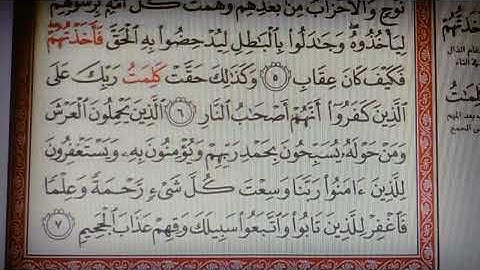 نُوحٍ وَٱلۡأَحۡزَابُ مِنۢ بَعۡدِهِمۡ وَهَمَّتۡ كُلُّ أُمَّةِۭ بِرَسُولِهِمۡ
لِيَأۡخُذُوهُۖ وَجَٰدَلُواْ بِٱلۡبَٰطِلِ لِيُدۡحِضُواْ بِهِ ٱلۡحَقَّ فَأَخَذتُّهُمۡۖ
فَكَيۡفَ كَانَ عِقَابِ ٥ وَكَذَٰلِكَ حَقَّتۡ كَلِمَتُ رَبِّكَ عَلَى
ٱلَّذِينَ كَفَرُوٓاْ أَنَّهُمۡ أَصۡحَٰبُ ٱلنَّارِ ٦ ٱلَّذِينَ يَحۡمِلُونَ ٱلۡعَرۡشَ
وَمَنۡ حَوۡلَهُۥ يُسَبِّحُونَ بِحَمۡدِ رَبِّهِمۡ وَيُؤۡمِنُونَ بِهِۦ وَيَسۡتَغۡفِرُونَ
لِلَّذِينَ ءَامَنُواْۖ رَبَّنَا وَسِعۡتَ كُلَّ شَيۡءٖ رَّحۡمَةٗ وَعِلۡمٗا
فَٱغۡفِرۡ لِلَّذِينَ تَابُواْ وَٱتَّبَعُواْ سَبِيلَكَ وَقِهِمۡ عَذَابَ ٱلۡجَحِيمِ ٧